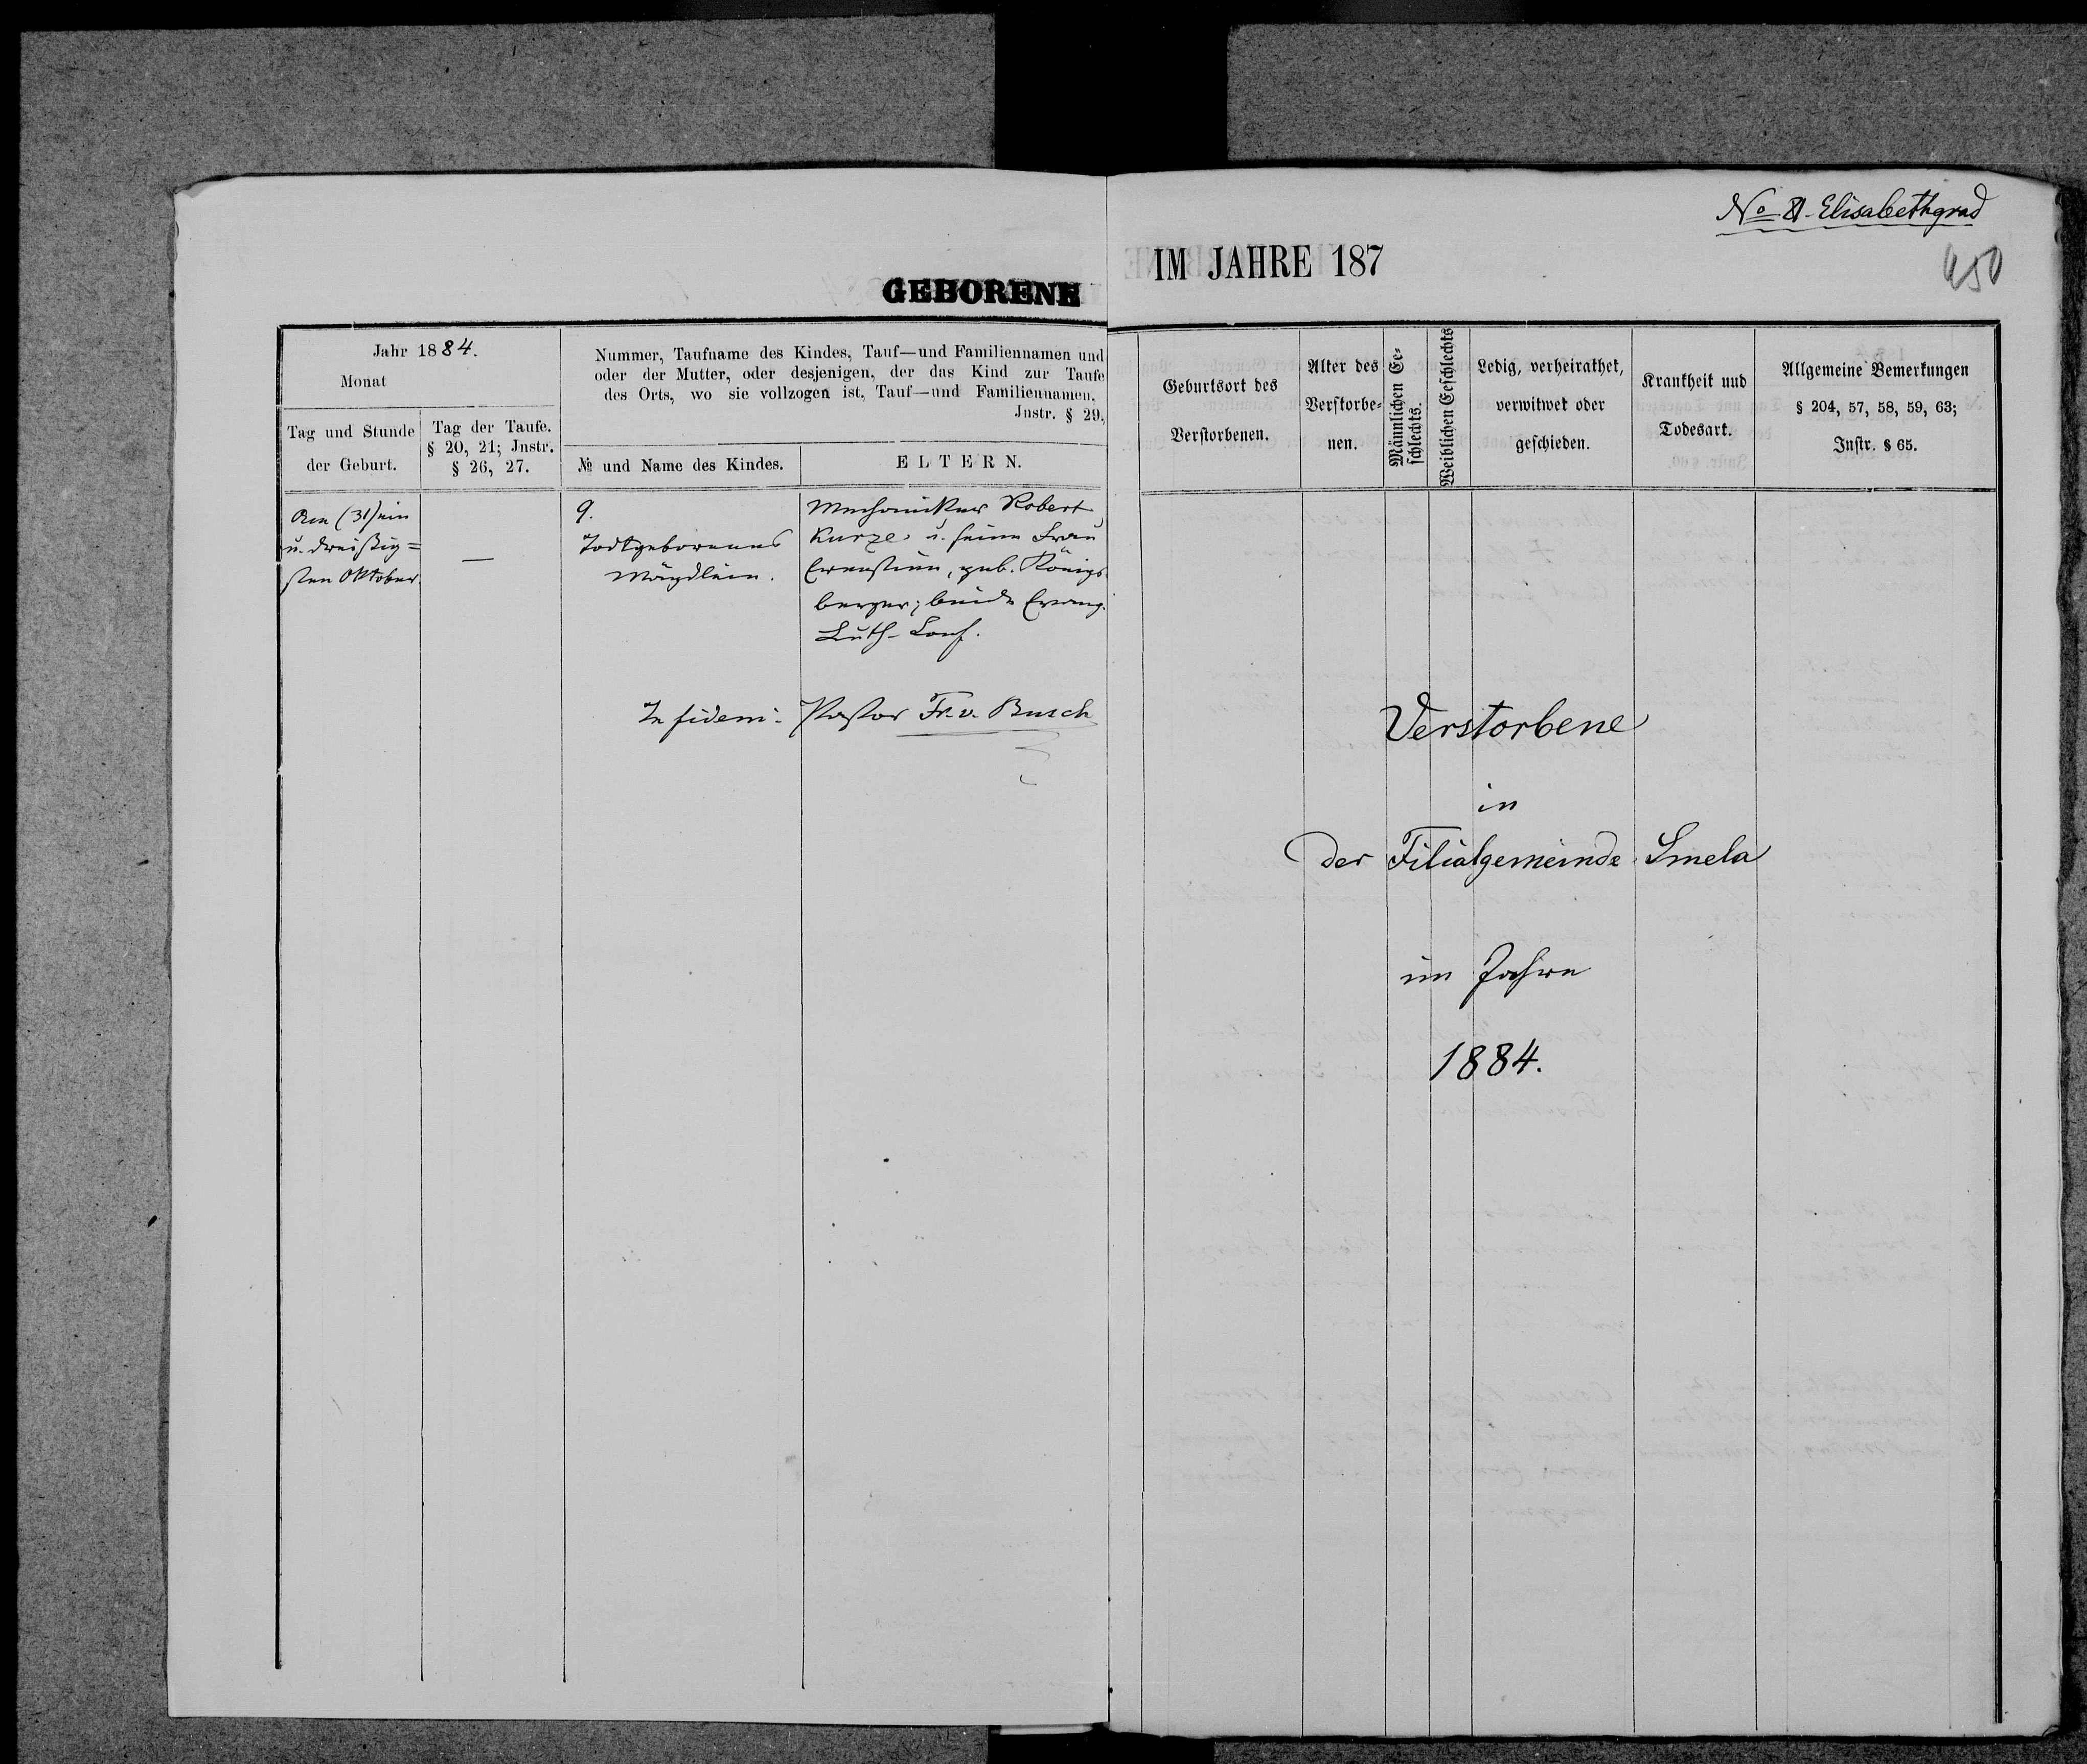 GEBORENE
Jahr 1884.
Monat
Tag und Stunde
der Geburt.
Tag der Taufe.
§ 20, 21; Jnstr.
§ 26, 27.
Nummer, Taufname des Kindes, Tauf—und Familiennamen und
oder der Mutter, oder desjenigen, der das Kind zur Taufe
des Orts, wo sie vollzogen ist, Tauf—und Familiennamen.
Jnstr. § 29,
№ und Name des Kindes.
ELTERN.
Am (31) ein
u. dreißig=
sten Oktober.
—
9.
Todtgeborenes
Mägdlein.
Mechaniker Robert
Kurze u. seine Frau
Ernestine, geb. Königs-
berger; beide Evang.
Luth. Conf.
In fidem: Pastor Fr. v. Busch
No 8. Elisabethgrad
450
IM JAHRE 187
Geburtsort des
Verstorbenen.
Alter des
Verstorbe-
nen.
Männlichen Ge-
schlechts.
Weiblichen Geschlechts
Ledig, verheirathet,
verwitwet oder
geschieden.
Krankheit und
Todesart.
Allgemeine Bemerkungen
§ 204, 57, 58, 59, 63;
Instr. § 65.
Verstorbene
in
der Filialgemeinde Smela
im Jahre
1884.